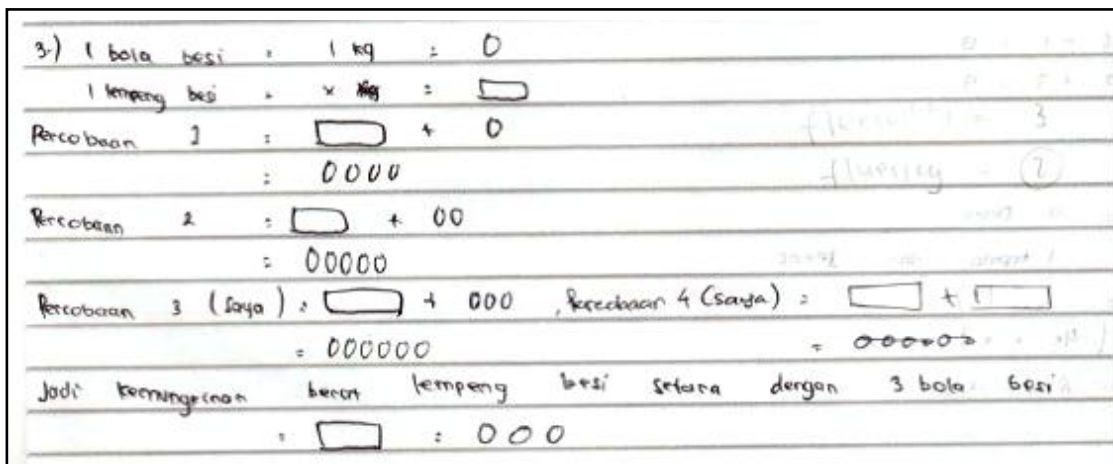 3.) 1 bola besi = 1 kg = O
1 lempeng besi = x kg = ▭
Percobaan 1 = ▭ + O
= OOOO
Percobaan 2 = ▭ + OO
= OOOOO
Percobaan 3 (saya) = ▭ + OOO , Percobaan 4 (saya) = ▭ + ▭
= OOOOOO = OOOOOO
Jadi kemungkinan berat lempeng besi setara dengan 3 bola besi
= ▭ = OOO